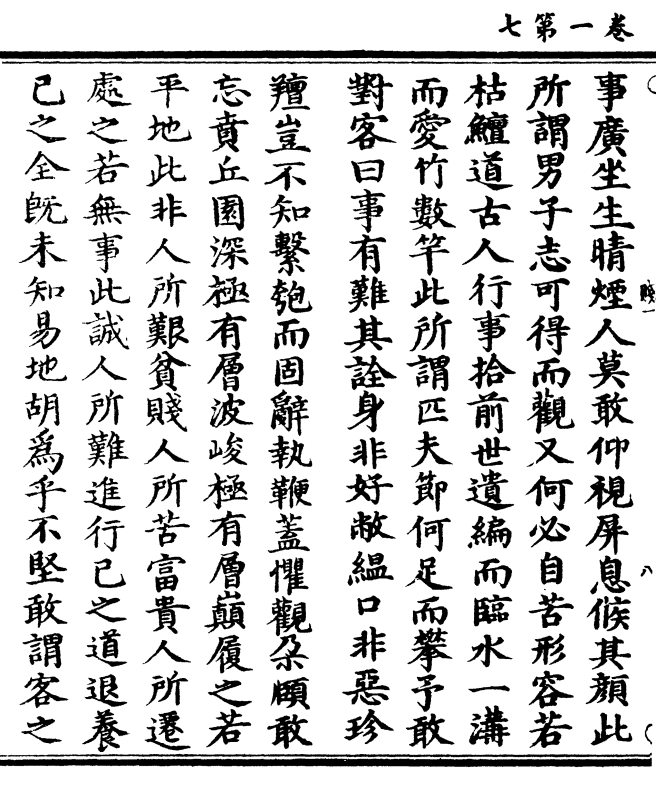 卷一第七
事廣坐生晴煙人莫敢仰視屏息候其顏此
所謂男子志可得而觀又何必自苦形容若
枯鱣道古人行事拾前世遺編而臨水一溝
而愛竹數竿此所謂匹夫節何足而攀予敢
對客曰事有難其詮身非好敝縕口非惡珍
羶豈不知繫匏而固辭執鞭蓋懼觀朶頤敢
忘賁丘園深極有層波峻極有層巔履之若
平地此非人所艱貧賤人所苦富貴人所遷
處之若無事此誠人所難進行已之道退養
已之全旣未知易地胡爲乎不堅敢謂客之